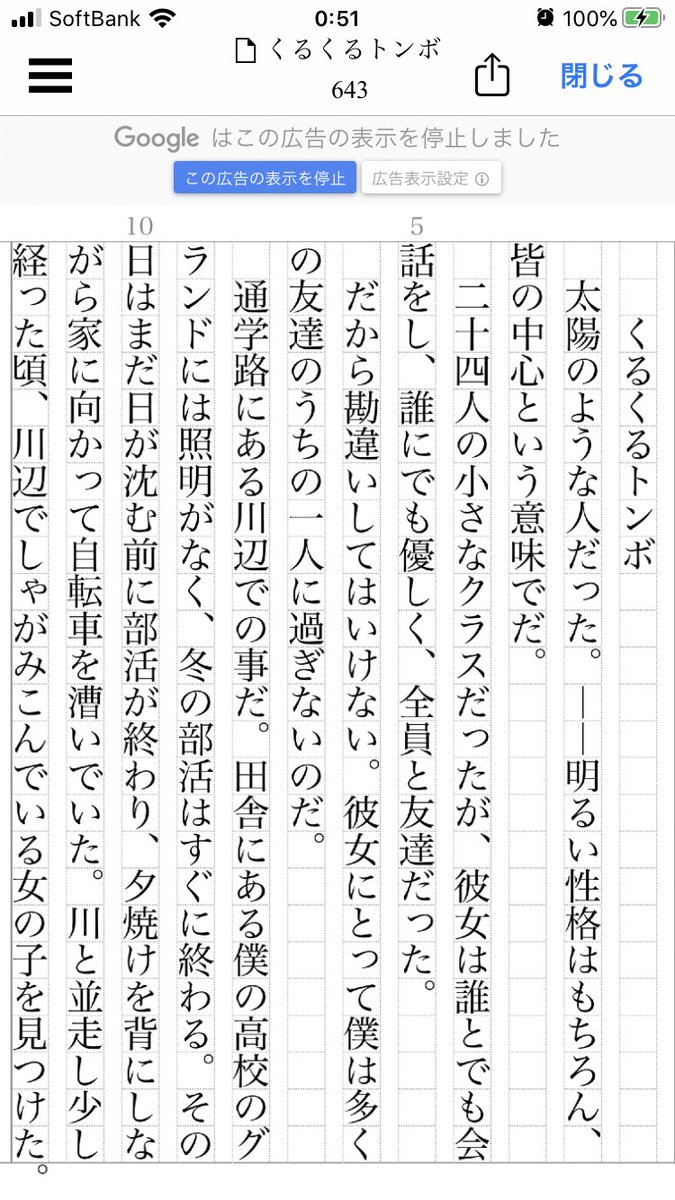 SoftBank 0:51 100%
くるくるトンボ
643
閉じる
Google はこの広告の表示を停止しました
この広告の表示を停止 広告表示設定
5
10
くるくるトンボ
太陽のような人だった。――明るい性格はもちろん、
皆の中心という意味でだ。
二十四人の小さなクラスだったが、彼女は誰とでも会
話をし、誰にでも優しく、全員と友達だった。
だから勘違いしてはいけない。彼女にとって僕は多く
の友達のうちの一人に過ぎないのだ。
通学路にある川辺での事だ。田舎にある僕の高校のグ
ランドには照明がなく、冬の部活はすぐに終わる。その
日はまだ日が沈む前に部活が終わり、夕焼けを背にしな
がら家に向かって自転車を漕いでいた。川と並走し少し
経った頃、川辺でしゃがみこんでいる女の子を見つけた。